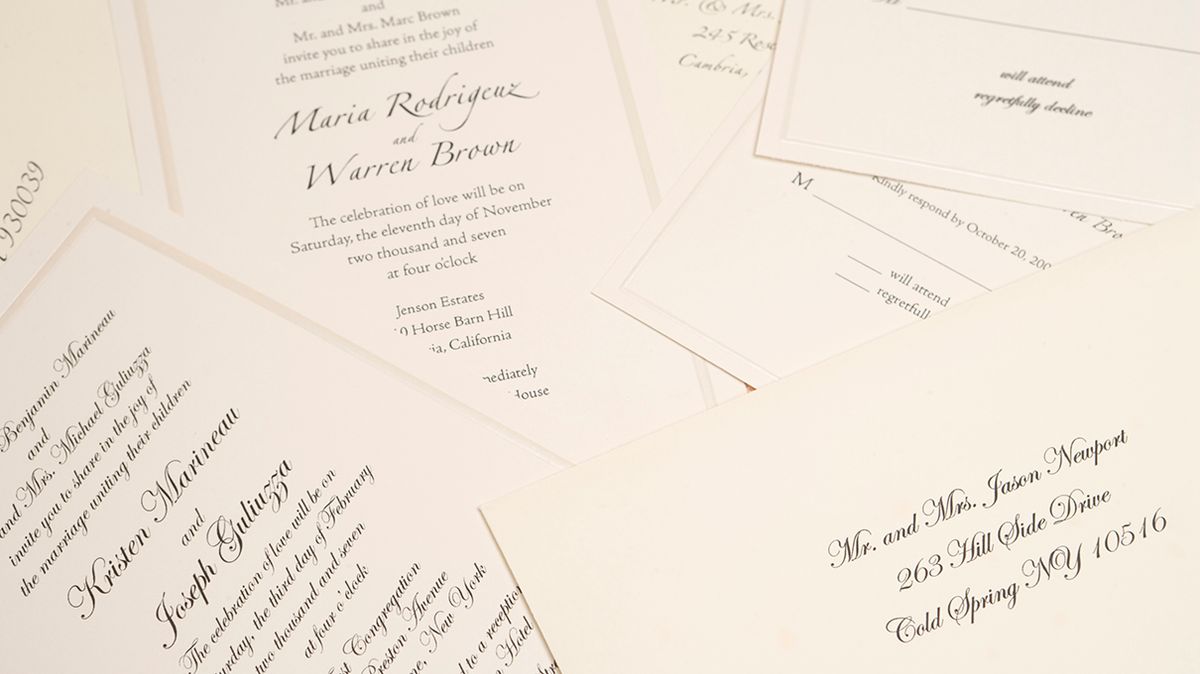 and
Mr. and Mrs. Marc Brown
invite you to share in the joy of
the marriage uniting their children
Maria Rodrigeuz
and
Warren Brown
The celebration of love will be on
Saturday, the eleventh day of November
two thousand and seven
at four o'clock
Jenson Estates
Horse Barn Hill
California
Mr. & Mrs.
245
Cambria,
will attend
regretfully decline
M
Kindly respond by October 20,
will attend
930039
Benjamin Marineau
and
and Mrs. Michael Guliuzza
invite you to share in the joy of
the marriage uniting their children
Kristen Marineau
and
Joseph Guliuzza
The celebration of love will be on
the third day of February
two thousand and seven
at four o'clock
Congregation
Avenue
New York
to a reception
Hotel
Mr. and Mrs. Jason Newport
263 Hill Side Drive
Cold Spring NY 10516